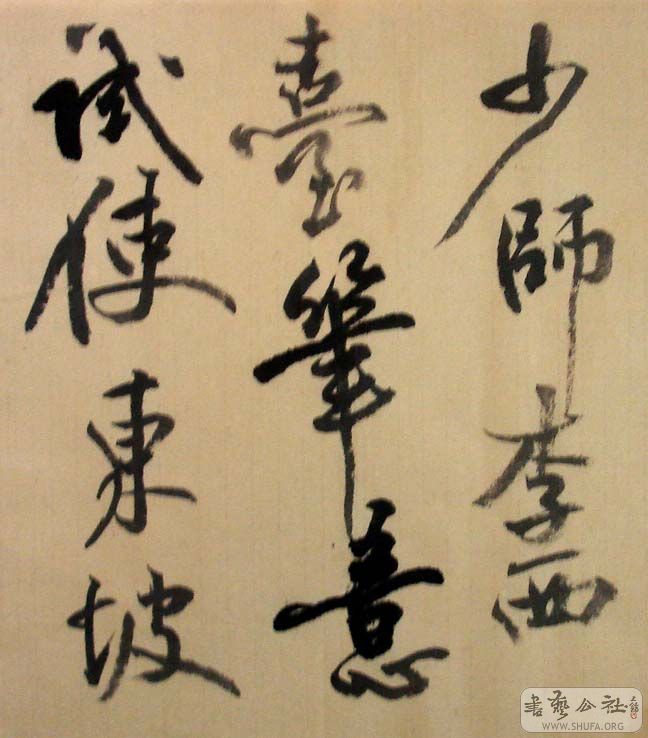 少師李西
臺筆意
試使東坡
書藝公社
WWW.SHUFA.ORG